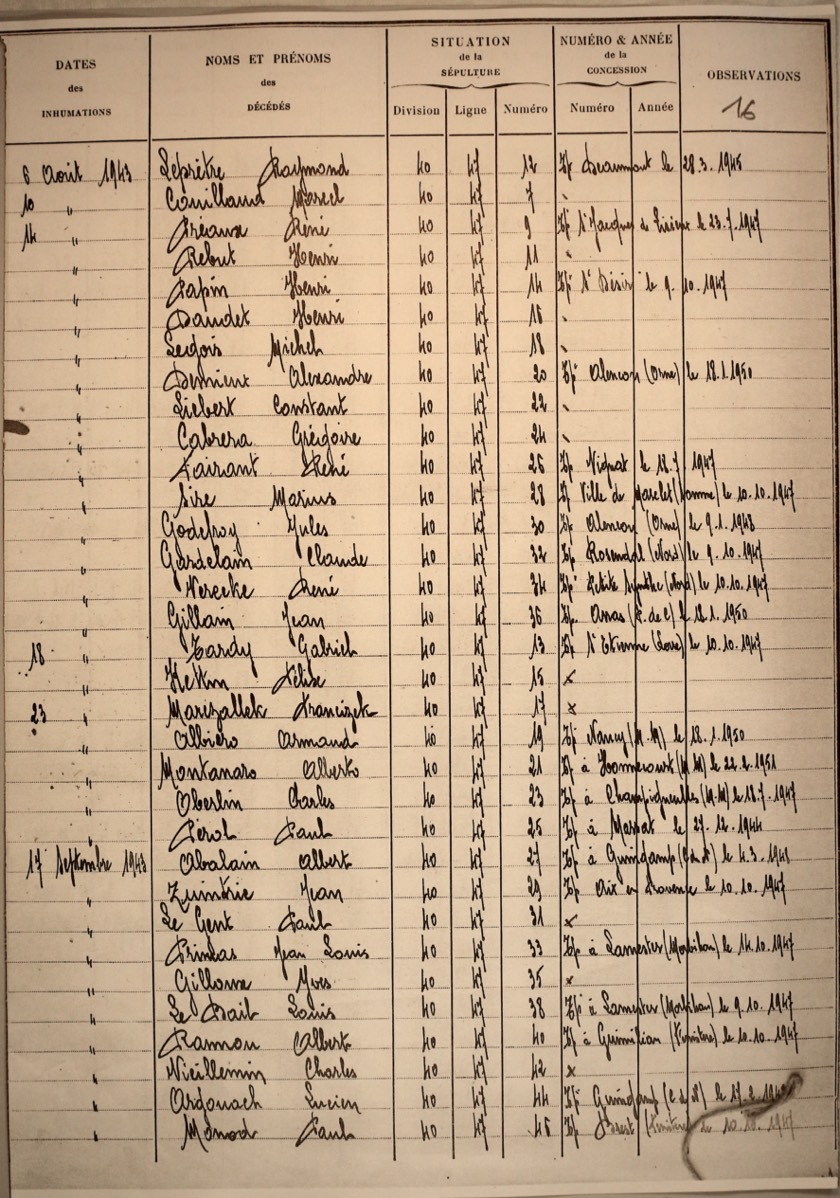 DATES des INHUMATIONS NOMS ET PRÉNOMS des DÉCÉDÉS SITUATION de la SÉPULTURE NUMÉRO & ANNÉE de la CONCESSION OBSERVATIONS
Division Ligne Numéro Numéro Année 16
6 Août 1943 Leprêtre Raymond 40 47 12 Tp Beaumont le 28.3.1945
10 " Couillaud Marcel 40 47 7 "
14 " Préaux René 40 47 9 Tp St Jacques de Lisieux le 23.7.1947
" Rebut Henri 40 47 11 "
" Papin Henri 40 47 14 Tp St Désir le 9.10.1947
" Daudet Henri 40 47 16 "
" Ledois Michel 40 47 18 "
" Alexandre 40 47 20 Tp Alençon (Orne) le 18.1.1950
" Liebert Constant 40 47 22 "
" Cabrera Grégoire 40 47 24 "
" René 40 47 26 Tp le 18.7 1947
" Sire Marius 40 47 28 Tp Ville de (Somme) le 10.10.1947
" Godefroy Jules 40 47 30 Tp Alençon (Orne) le 9.1.1948
" Gardelain Claude 40 47 32 Tp Rosendal (Nord) le 9.10.1947
" Vereecke René 40 47 34 Tp Petite Synthe (Nord) le 10.10.1947
" Gillain Jean 40 47 36 Tp. Arras (P. de C) le 18.1.1950
18 " Tardy Gabriel 40 47 13 Tp St Etienne (Loire) le 10.10.1947
" Félix 40 47 15 x
23 " Marczallek Franciszek 40 47 17 x
" Albiero Armand 40 47 19 Tp Nancy (M.M) le 18.1.1950
" Montanaro Alberto 40 47 21 Tp à Homécourt (M.M) le 22.2.1951
" Oberlin Charles 40 47 23 Tp à Champigneulles (M.M) le 18.7.1947
" Pérol Paul 40 47 25 Tp à Massat le 27.12.1944
17 Septembre 1943 Abalain Albert 40 47 27 Tp à Guingamp (C du N) le 4.3.1948
" Jean 40 47 29 Tp Aix en Provence le 10.10.1947
" Le Gent Paul 40 47 31 x
" Jean Louis 40 47 33 Tp à Lanester (Morbihan) le 14.10.1947
" Gilloux Yves 40 47 35 x
" Le Bail Louis 40 47 38 Tp à Lanester (Morbihan) le 9.10.1947
" Rannou Albert 40 47 40 Tp à Guimiliau (Finistère) le 10.10.1947
" Vieillemin Charles 40 47 42 x
" Ardouach Lucien 40 47 44 Tp Guingamp (C du N) le 17.2.1948
" Monod Paul 40 47 46 Tp Brest (Finistère) le 10.10.1947